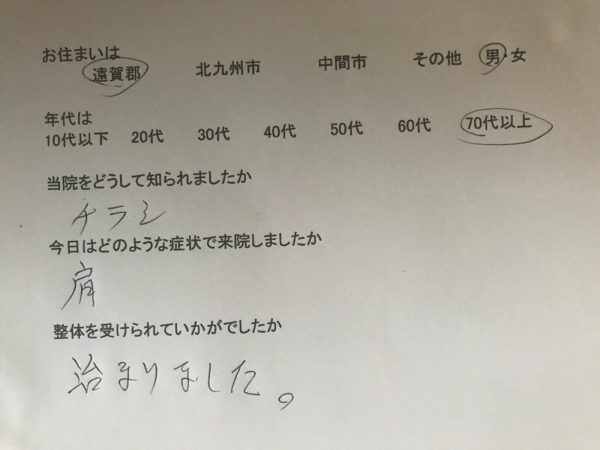 お住まいは
遠賀郡 北九州市 中間市 その他 男・女
年代は
10代以下 20代 30代 40代 50代 60代 70代以上
当院をどうして知られましたか
チラシ
今日はどのような症状で来院しましたか
肩
整体を受けられていかがでしたか
治まりました。